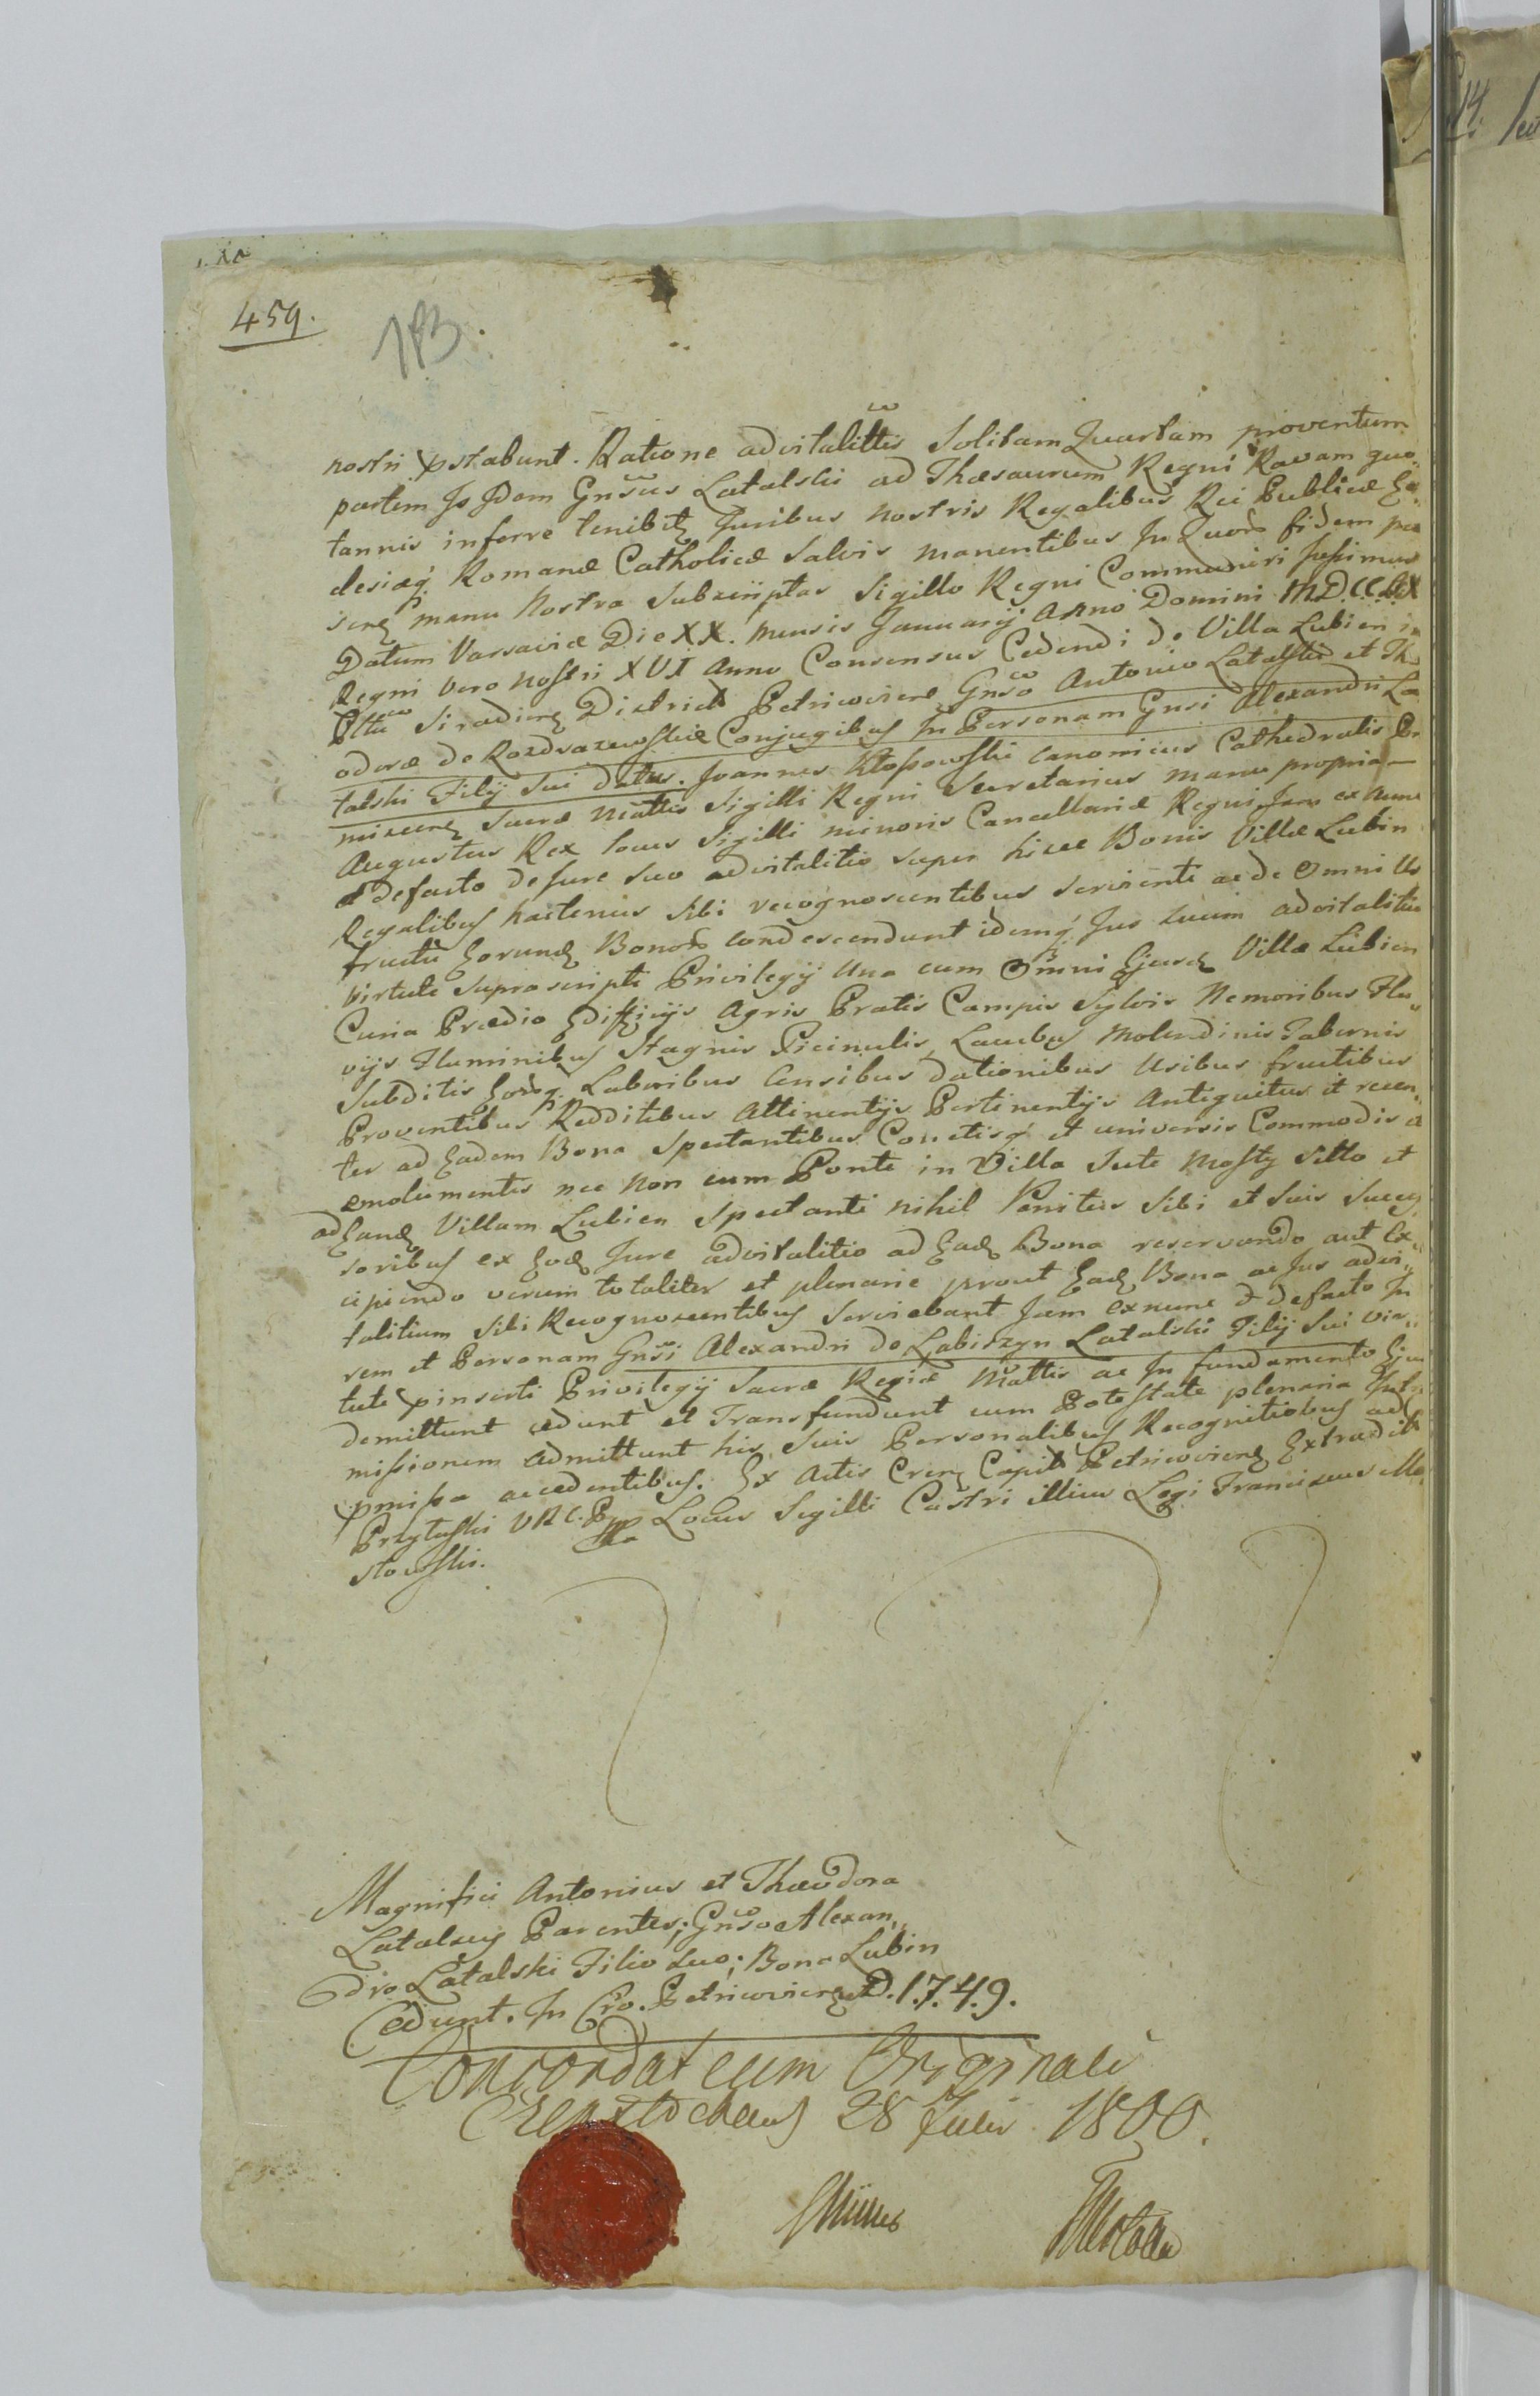 459.
183.
nostri pstabunt. Ratione advitalittis Solitam Quartam proventum
partem Is Idem Gnsus Latalski ad Thesaurum Regni Ravam quo„
tannis inferre tenibitꝫ Juribus nostris Regalibus Rei Publicæ Ec„
clesiæq́ Romanæ Catholicæ Salvis manentibus In Quor fidem præ
senꝫ manu Nostra Subscriptas Sigillo Regni Communiri Jussimus
Datum Varsaviæ Die XX. mensis Januarij Anno Domini MDCCXLIX
Regni vero nostri XVI Anno Consensus Cedendi de Villa Lubien in
Pttu Siradienꝫ District Petricovienꝫ Gnso Antonio Latalski et Th
odoræ de Rozdrazewskie Conjugibus In Personam Gnsi Alexandri La
talski Filij Sui Datus. Joannes Kłossowski Canonicus Cathedralis Pr
mislienꝫ Sacræ Mattis Sigilli Regni Secretarius manu propria —
Augustus Rex locus Sigilli minoris Cancellariæ Regni Jam ex nunc
& defacto de Jure suo advitalitio super hisce Bonis Villæ Lubin
Regalibus hactenus sibi recognoscentibus servienti ac de Omni Us
fructu Eorundꝫ Bonor condescendunt idemq́ Jus suum advitalitiu
virtute suprascripti Privilegij Una cum Omni Ejusdꝫ Villæ Lubien
Curia Prædio Ædificijs Agris Pratis Campis Sylvis Nemoribus Flu„
vijs Fluminibus Stagnis Picinulis, Lacubus Molendinis Tabernis
Subditis Eorq. Laboribus Censibus dationibus Usibus fructibus
Proventibus Redditibus Attinentijs Pertinentijs Antiquitus et recen„
ter ad Eadem Bona Spectantibus Conctisq́ et universis Commodis a
emolumentis nec non cum Ponte in Villa Sute Mosty Sitto et
ad Eandꝫ Villam Lubien Spectanti nihil Penitus Sibi et Suis Succeſ
soribus ex Eodꝫ Jure advitalitio ad Eadꝫ Bona reservando aut Ex„
cipiendo verum totaliter et plenarie prout Eadꝫ Bona ac Jus advi„
talitium sibi Recognoscentibus Serviebant Jam exnunc & defacto In
rem et Personam Gnsi Alexandri de Labiszyn Latalski Filij Sui vir„
tute pinserti Privilegij Sacræ Regiæ Mattis ac In fundamento Ejus
demittunt cedunt et Transfundunt cum Potestate plenaria Intro
missionem admittunt his Suis Personalibus Recognitiobus ad
pmissa accedentibus. Ex Actis Crenꝫ Capit Petricovienꝫ Extradit
Przyłuski V R C. P. Locus Sigilli Castri illius Legi Franciscus Ma„
słowski.
Magnifici Antonius et Theodora
Latalscy Parentes; Gnso Alexan„
dro Latalski Filio suo; Bona Lubin
Cedunt. In Cro. Petricovienꝫ A D. 1.7.4.9.
Concordat cum Originali
28 Julii 1800.